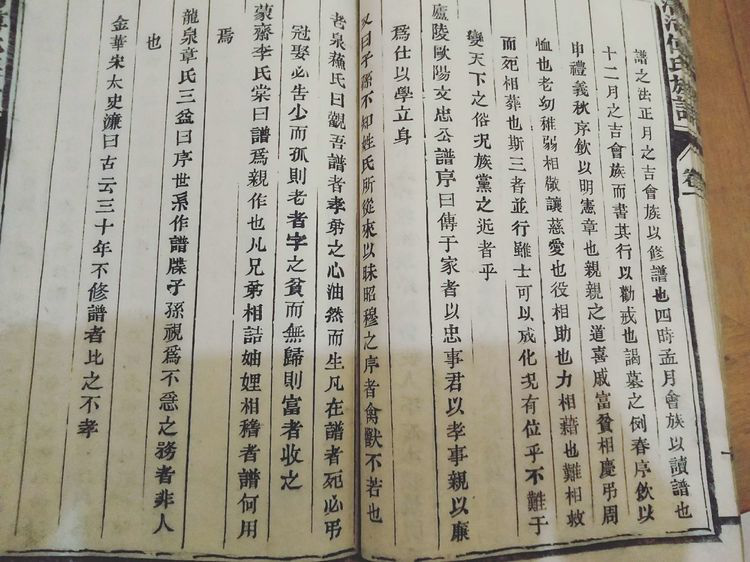 譜之法正月之吉會族以修譜也四時孟月會族以讀譜也
十二月之吉會族而書其行以勸戒也謁墓之例春序飲以
申禮義秋序飲以明憲章也親親之道喜戚富貧相慶弔周
恤也老幼稚弱相敬讓慈愛也役相助也力相藉也難相救
而死相葬也斯三者並行雖士可以成化况有位乎不難于
變天下之俗况族黨之近者乎
廬陵歐陽文忠公譜序曰傳于家者以忠事君以孝事親以廉
爲仕以學立身
又曰子孫不知姓氏所從來以昧昭穆之序者禽獸不若也
老泉蘇氏曰觀吾譜者孝弟之心油然而生凡在譜者死必弔
冠娶必告少而孤則老者字之貧而無歸則富者收之
蒙齋李氏棠曰譜爲親作也凡兄弟相詰妯娌相稽者譜何用
焉
龍泉章氏三益曰序世系作譜牒子孫視爲不急之務者非人
也
金華宋太史濂曰古云三十年不修譜者比之不孝